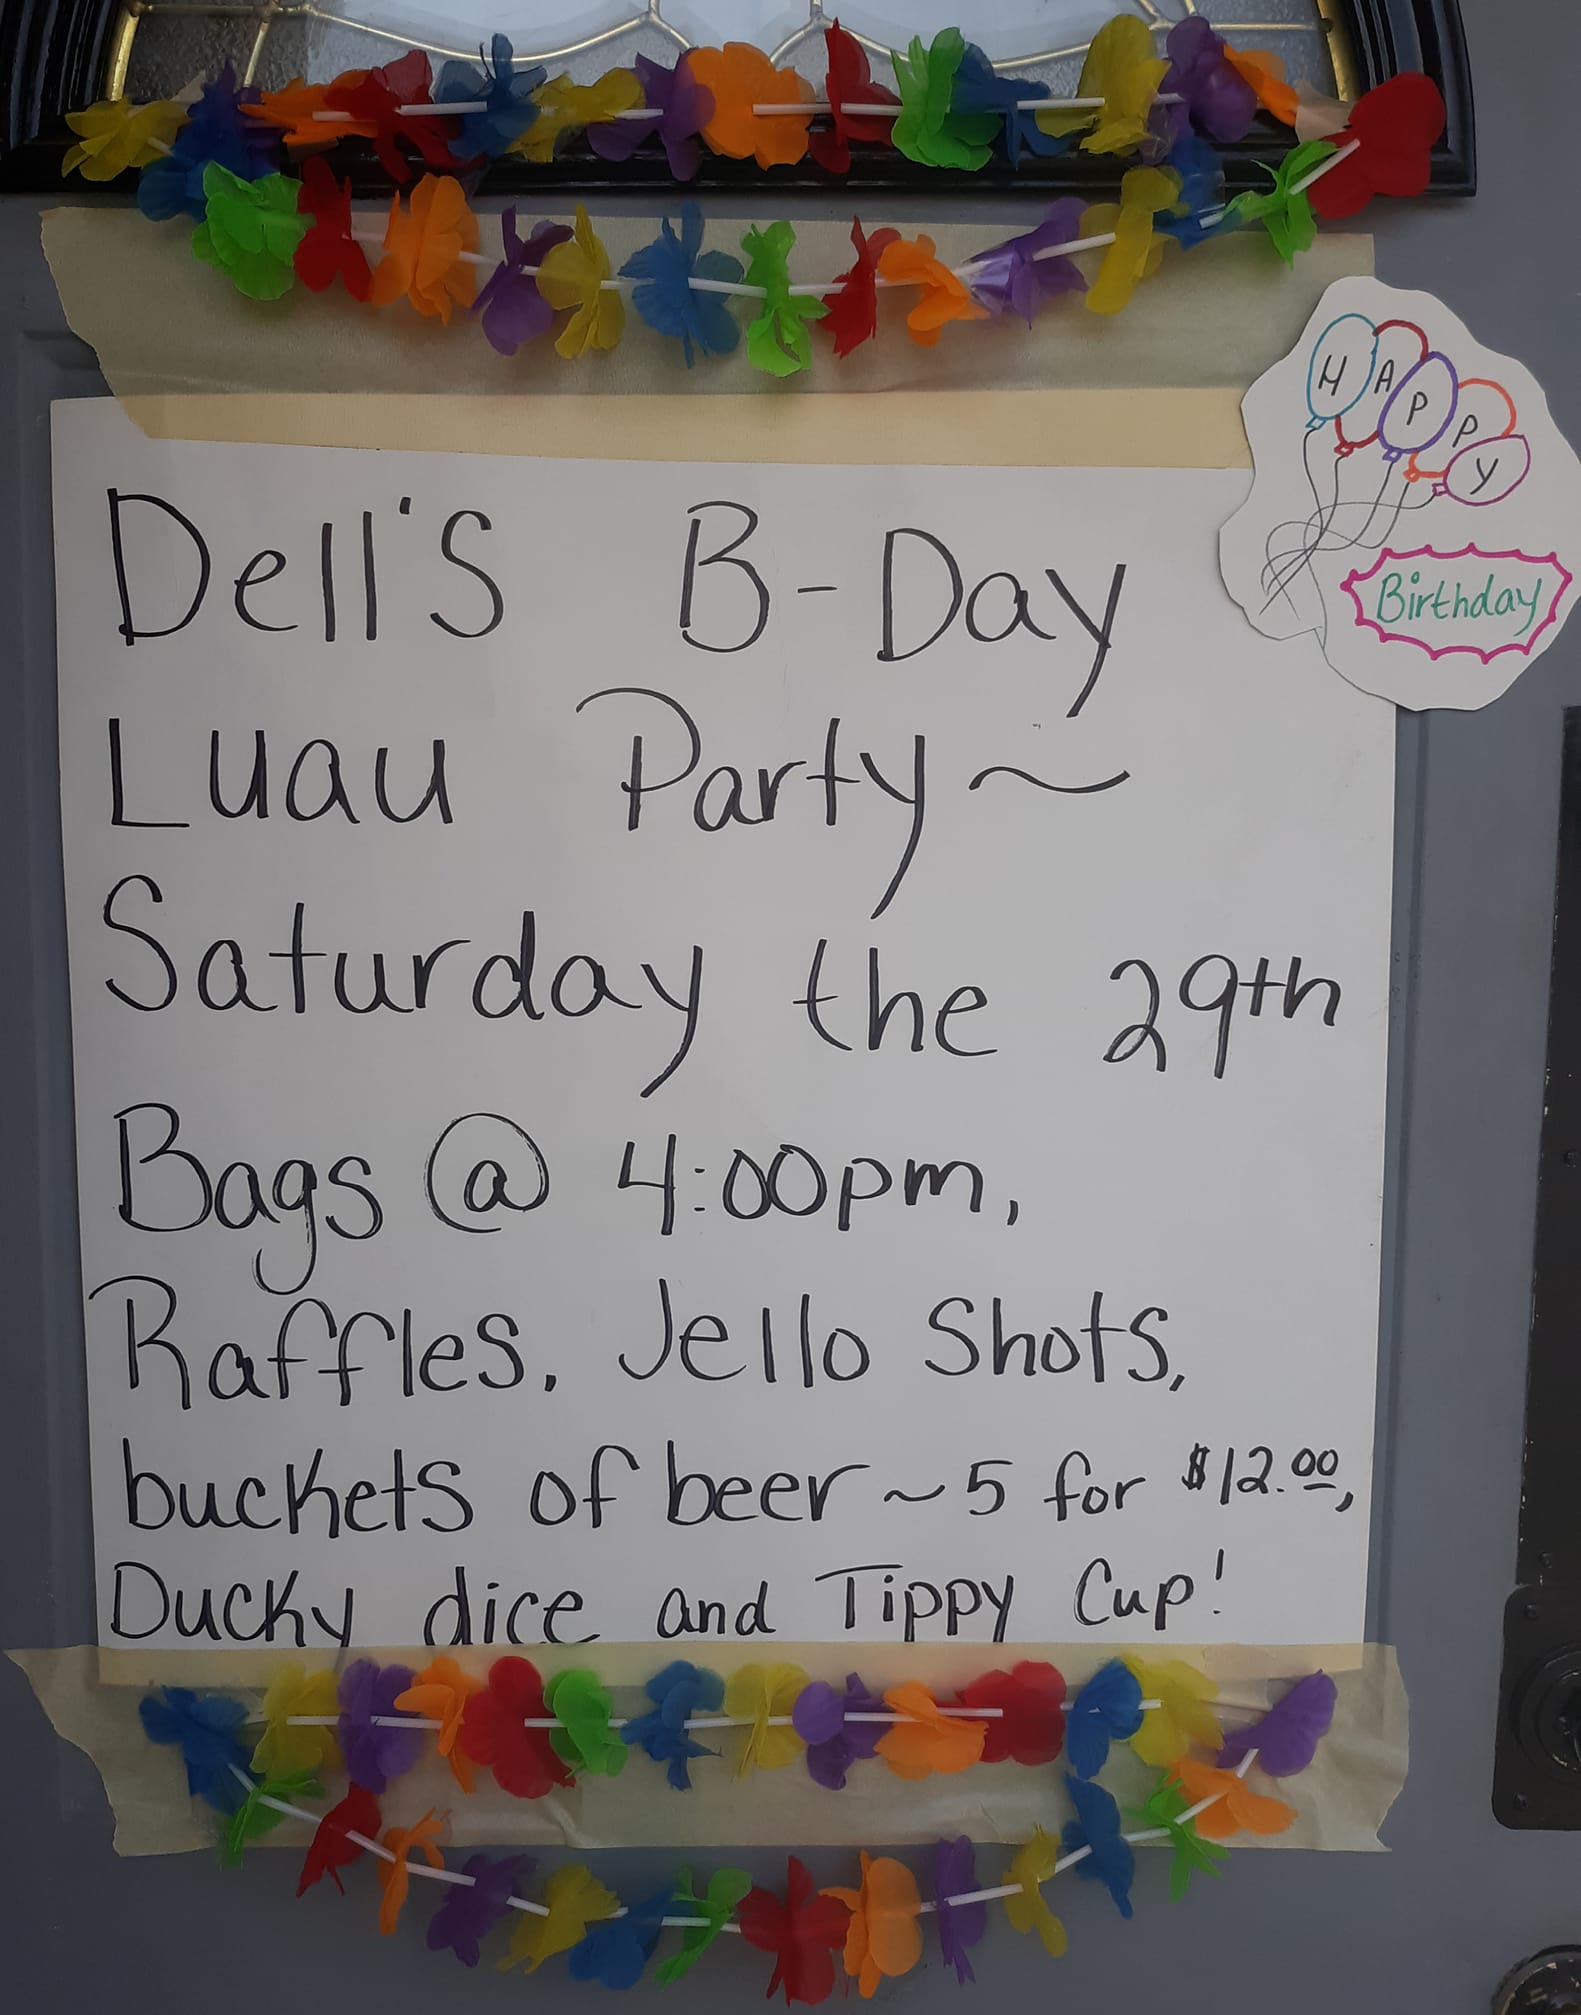 Dell's B-Day
Luau Party~
Saturday the 29th
Bags @ 4:00pm,
Raffles, Jello Shots,
buckets of beer ~ 5 for $12.00,
Ducky dice and Tippy Cup!
HAPPY
Birthday